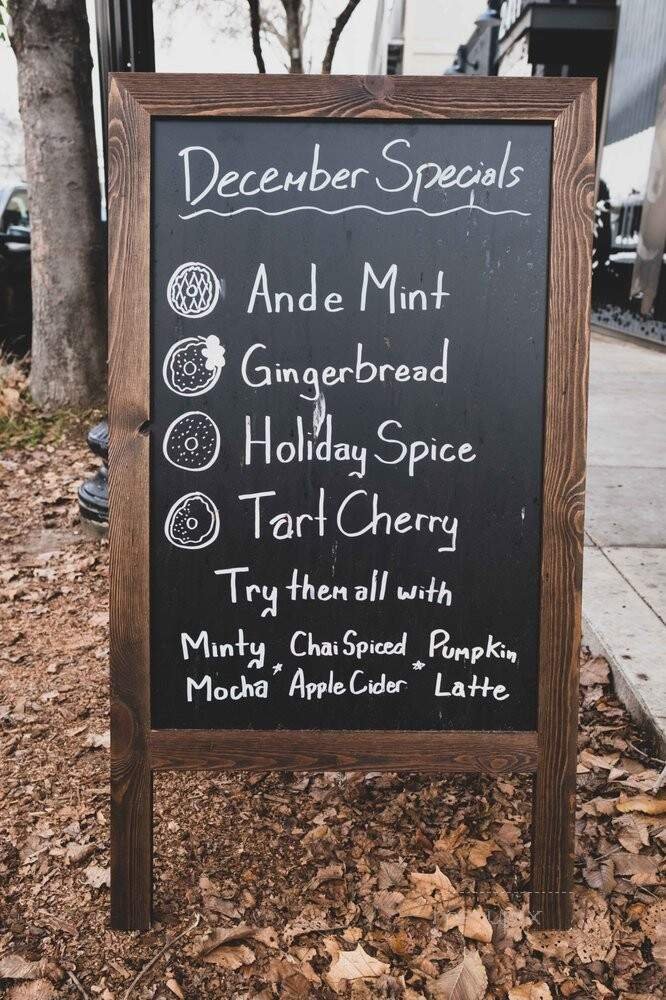 December Specials
Ande Mint
Gingerbread
Holiday Spice
Tart Cherry
Try them all with
Minty Chai Spiced Pumpkin
Mocha * Apple Cider * Latte